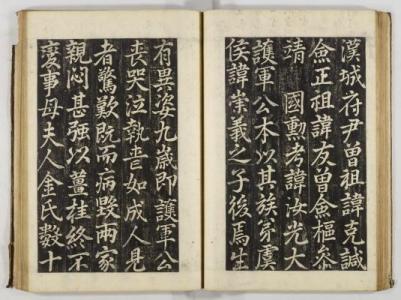 漢城府尹曾祖諱克諴
僉正祖諱友曾僉樞叅
靖 國勳考諱汝光大
護軍公本以其族弟虞
侯諱崇義之子後焉生
有異姿九歲即護軍公
喪哭泣執喪如成人見
者驚歎既而病毀兩家
親悶甚强以薑桂終不
變事母夫人金氏數十